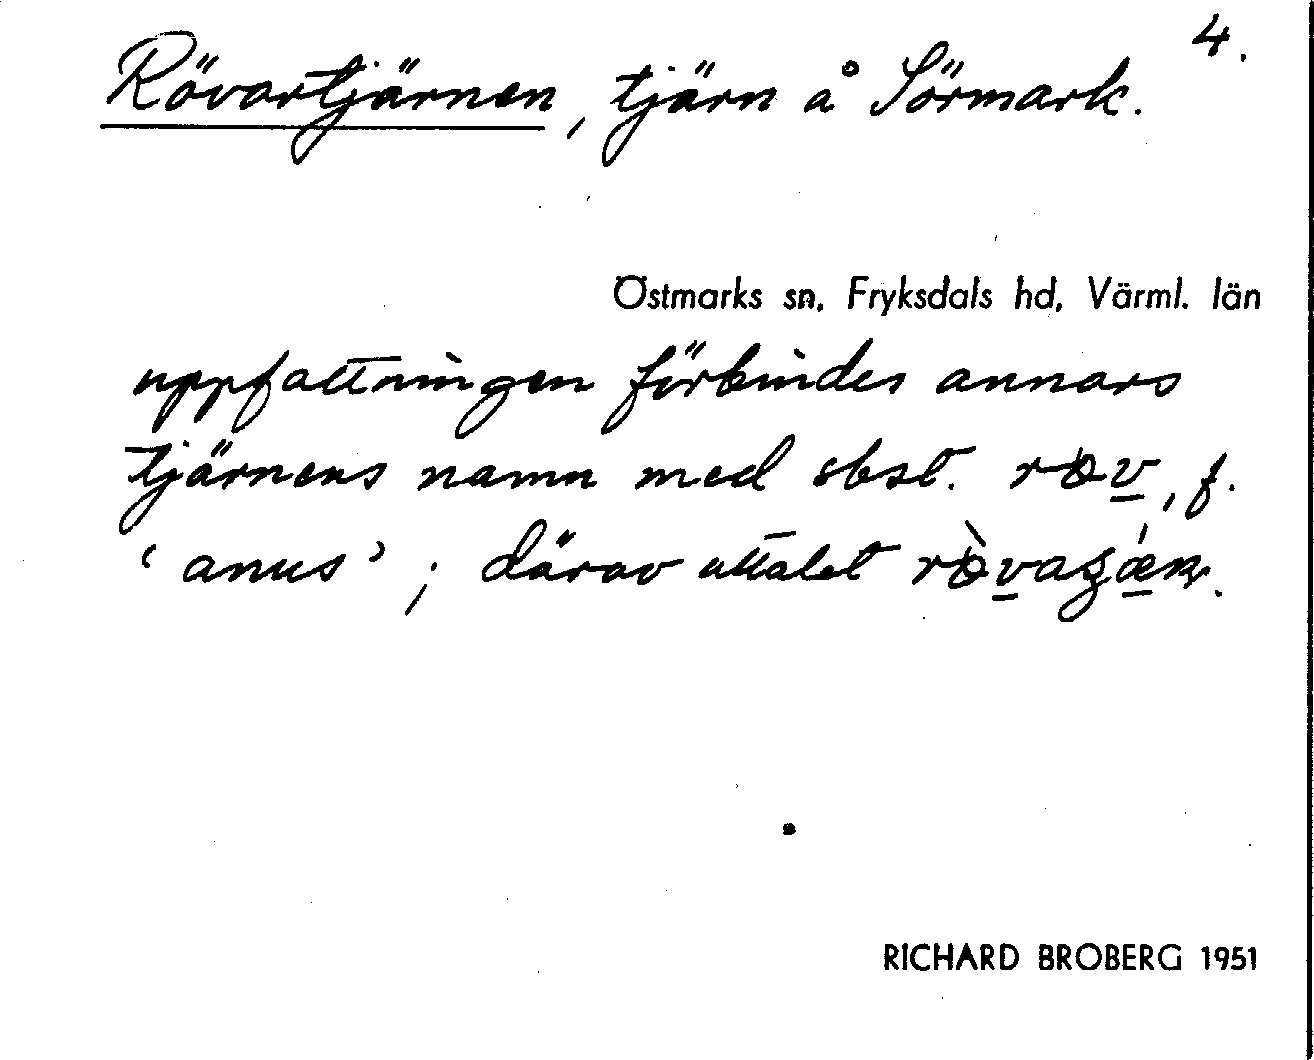 4.
Rövartjärnen, tjärn å Sörmark.
Östmarks sn, Fryksdals hd, Värml. län
uppfattningen förbindes annars
tjärnens namn med sbst. röv, f.
‘anus’; därav uttalet
RICHARD BROBERG 1951